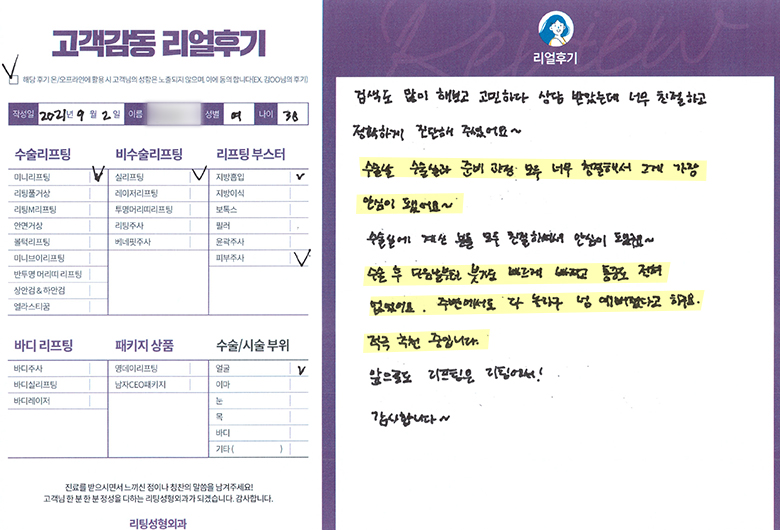 고객감동 리얼후기
해당 후기 온/오프라인에 활용 시 고객님의 성함은 노출되지 않으며, 이에 동의합니다(EX. 김OO님의 후기)
작성일 2021년 9월 2일 이름 성별 여 나이 38
수술리프팅
미니리프팅
리팅풀거상
리팅M리프팅
안면거상
볼턱리프팅
미니브이리프팅
반투명 머리띠 리프팅
상안검 & 하안검
엘라스티꿈
비수술리프팅
실리프팅
레이저리프팅
투명머리띠리프팅
리팅주사
베네핏주사
리프팅 부스터
지방흡입
지방이식
보톡스
필러
윤곽주사
피부주사
바디 리프팅
바디주사
바디실리프팅
바디레이저
패키지 상품
영데이리프팅
남자CEO패키지
수술/시술 부위
얼굴
이마
눈
목
바디
기타 ( )
진료를 받으시면서 느끼신 점이나 칭찬의 말씀을 남겨주세요!
고객님 한 분 한 분 정성을 다하는 리팅성형외과가 되겠습니다. 감사합니다.
리팅성형외과
리얼후기
검색도 많이 해보고 고민하다 상담 받았는데 너무 친절하고
정확하게 진단해 주셨어요~
수술날 수술실과 준비 과정 모두 너무 청결해서 그게 가장
안심이 됐어요~
수술실에 계신 분들 모두 친절하셔서 안심이 되었죠~
수술 후 다음날부터 붓기도 빠르게 빠지고 통증도 전혀
없었어요. 주변에서도 다 놀라구 넘 예뻐졌다고 하구요.
적극 추천 중입니다.
앞으로도 리프팅은 리팅에서!
감사합니다~